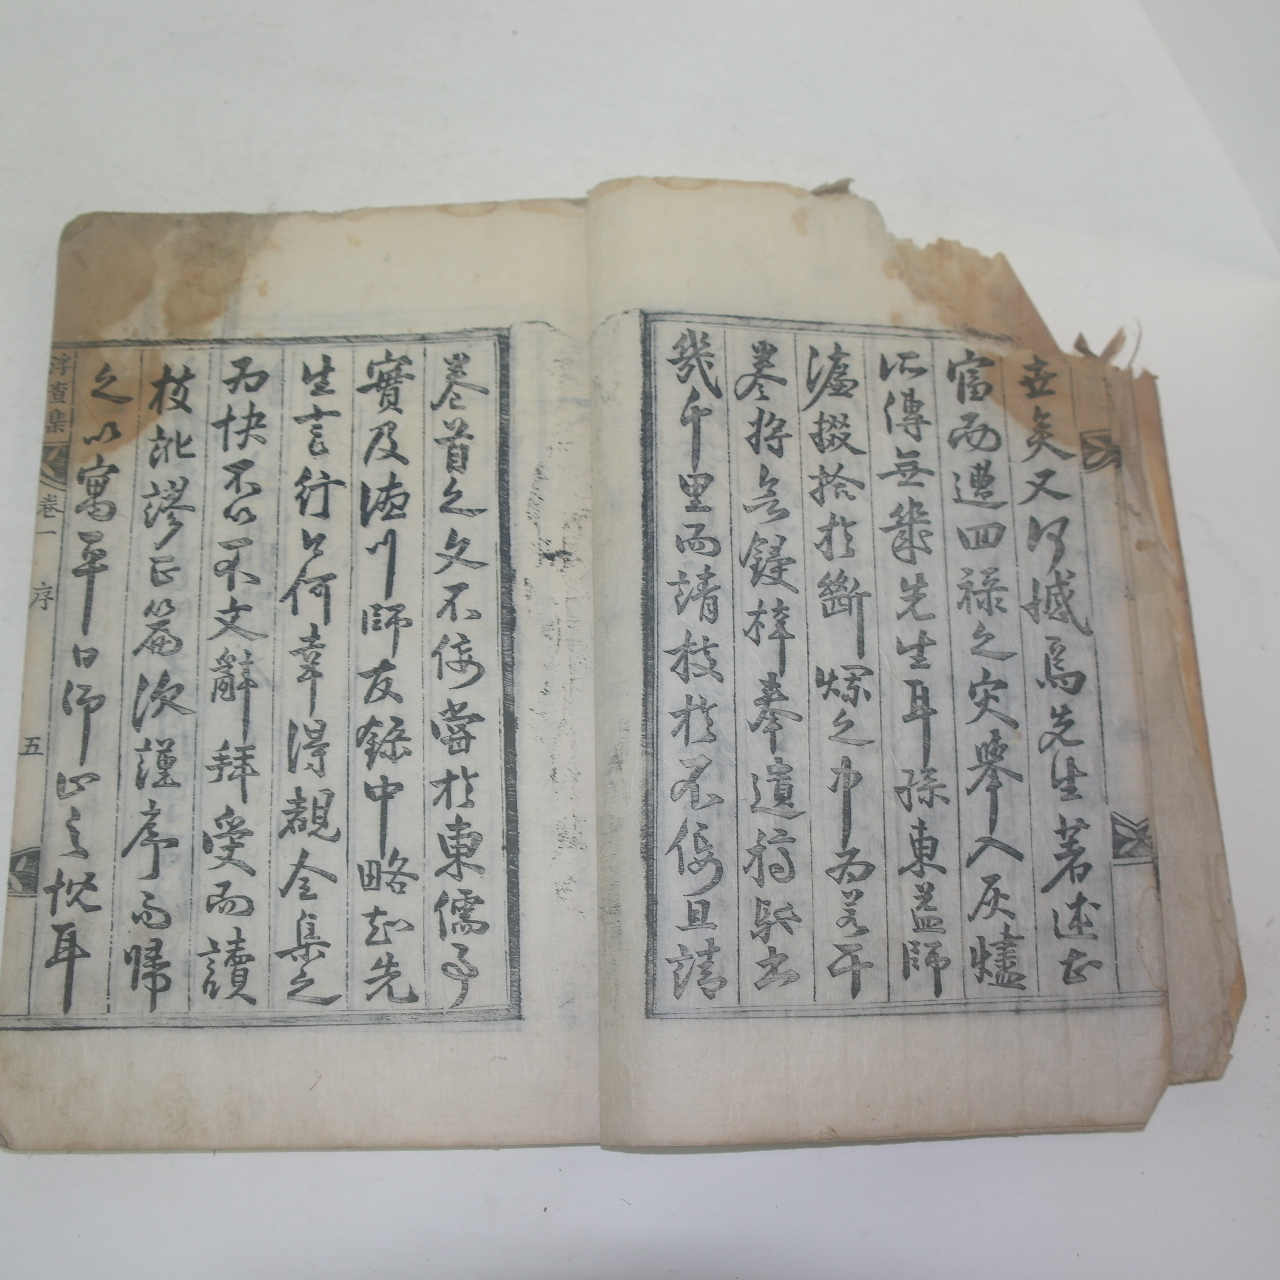 世矣又何憾焉先生著述甚
富而遭回祿之灾擧入灰燼
所傳無幾先生耳孫東益師
濂掇拾於斷爛之中而若干
卷將無鋟梓奉遺稿馱出
幾千里而請校於不佞且請
卷首之文不佞嘗於東儒事
實及德川師友錄中略知先
生言行今何幸得覩全集之
爲快不以不文辭拜受而讀
校訛謬正篇次謹序而歸
之以寓平日師仰之忱耳
浮査集
卷一
序
五